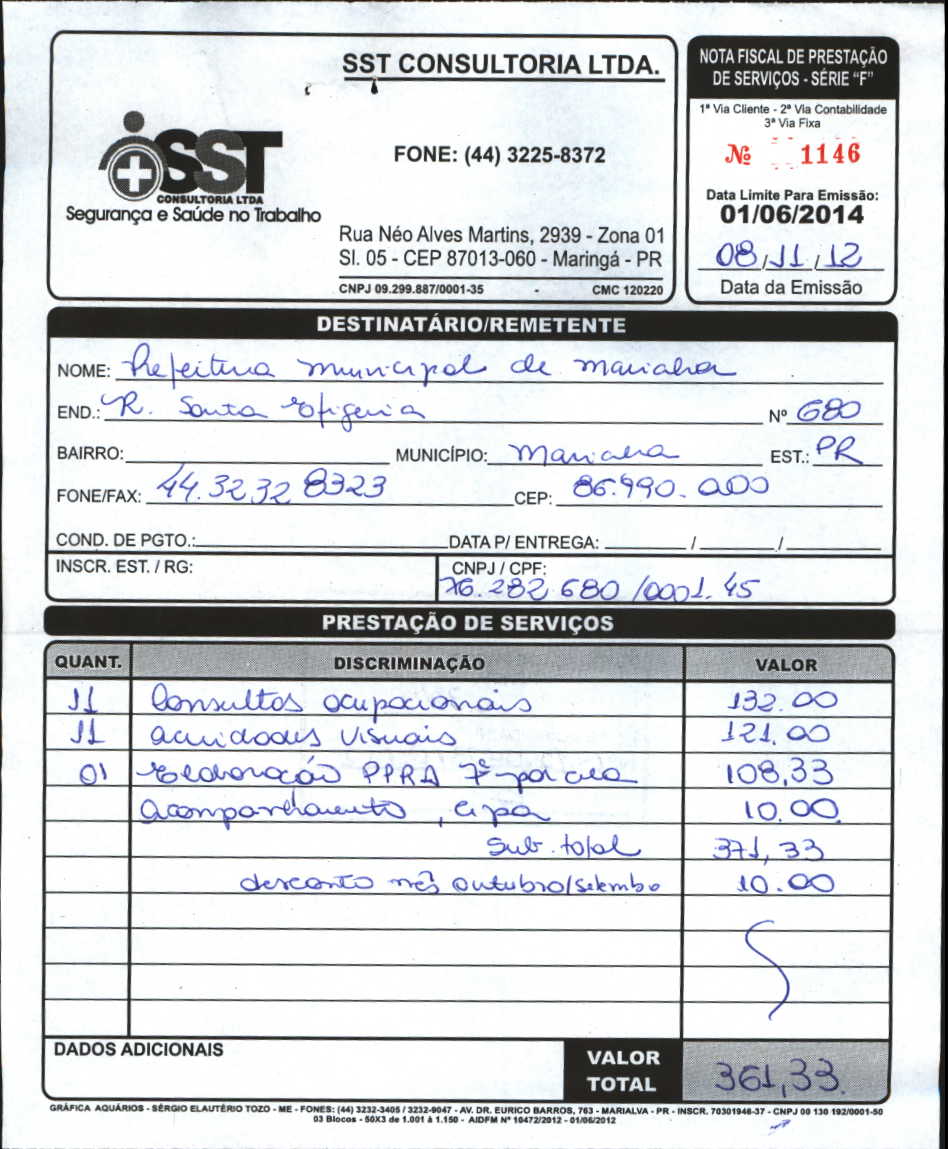 SST CONSULTORIA LTDA.
SST
CONSULTORIA LTDA
Segurança e Saúde no Trabalho
FONE: (44) 3225-8372
Rua Néo Alves Martins, 2939 - Zona 01
Sl. 05 - CEP 87013-060 - Maringá - PR
CNPJ 09.299.887/0001-35 - CMC 120220
NOTA FISCAL DE PRESTAÇÃO
DE SERVIÇOS - SÉRIE “F”
1ª Via Cliente - 2ª Via Contabilidade
3ª Via Fixa
Nº 1146
Data Limite Para Emissão:
01/06/2014
08/11/12
Data da Emissão
DESTINATÁRIO/REMETENTE
NOME: Prefeitura municipal de marialva
END.: R. Santa Efigenia Nº 680
BAIRRO: MUNICÍPIO: marialva EST.: PR
FONE/FAX: 44.32328323 CEP: 86.990.000
COND. DE PGTO.: DATA P/ ENTREGA: / /
INSCR. EST. / RG: CNPJ / CPF:
76.282 680/0001.45
PRESTAÇÃO DE SERVIÇOS
QUANT. DISCRIMINAÇÃO VALOR
11 Consultas ocupacionais 132.00
11 acuidades visuais 121.00
01 Elaboração PPRA 7ª parcela 108,33
acompanhamento, cipa 10.00
Sub. total 371,33
desconto mês outubro/setembo 10.00
DADOS ADICIONAIS
VALOR TOTAL 361,33
GRÁFICA AQUÁRIOS - SÉRGIO ELAUTÉRIO TOZO - ME - FONES: (44) 3232-3405 / 3232-9047 - AV. DR. EURICO BARROS, 763 - MARIALVA - PR - INSCR. 70301946-37 - CNPJ 00 130 192/0001-50
03 Blocos - 50X3 de 1.001 à 1.150 - AIDFM Nº 10472/2012 - 01/06/2012